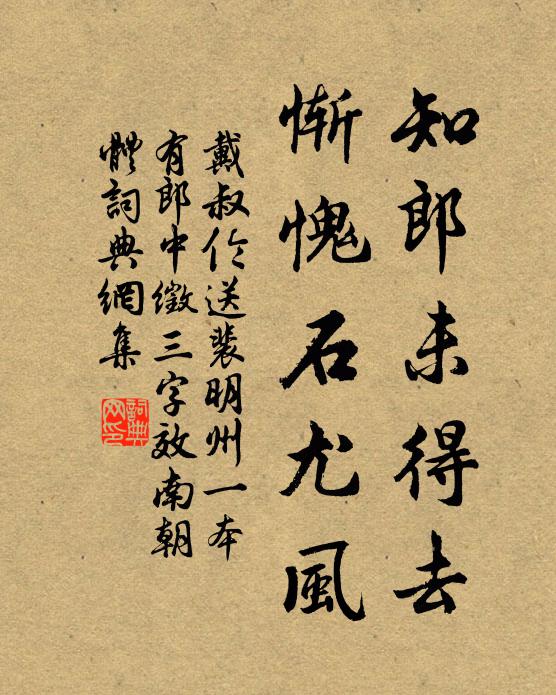 知郎未得去
慚愧石尤風
戴叔伦送裴明州一本
有郎中徵三字效南朝
體詞典網集
詞典网印